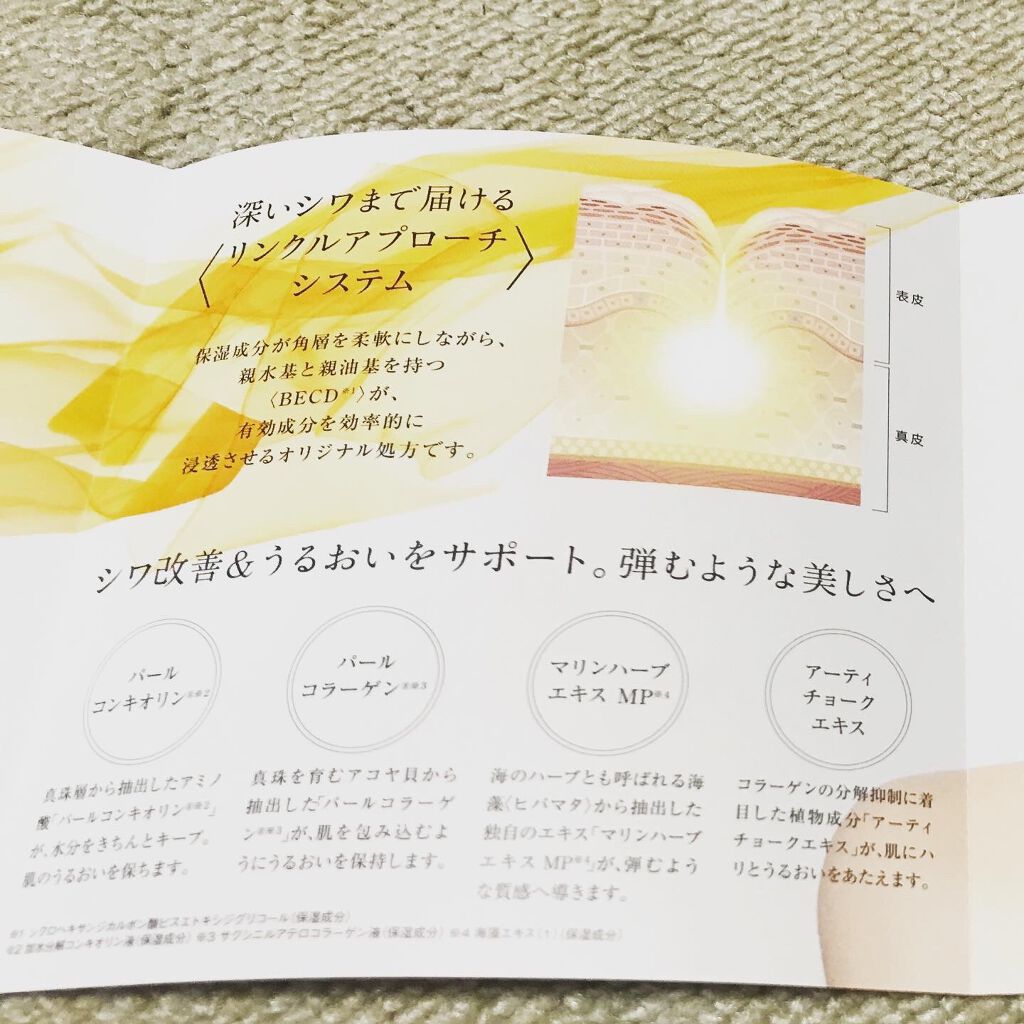 深いシワまで届ける
〈リンクルアプローチ
システム〉
保湿成分が角層を柔軟にしながら、
親水基と親油基を持つ
〈BECD※1〉が、
有効成分を効率的に
浸透させるオリジナル処方です。
表皮
真皮
シワ改善&うるおいをサポート。弾むような美しさへ
パール
コンキオリン®※2
真珠層から抽出したアミノ
酸「パールコンキオリン®※2」
が、水分をきちんとキープ。
肌のうるおいを保ちます。
パール
コラーゲン®※3
真珠を育むアコヤ貝から
抽出した「パールコラーゲ
ン®※3」が、肌を包み込むよ
うにうるおいを保持します。
マリンハーブ
エキス MP※4
海のハーブとも呼ばれる海
藻〈ヒバマタ〉から抽出した
独自のエキス「マリンハーブ
エキス MP※4」が、弾むよう
な質感へ導きます。
アーティ
チョーク
エキス
コラーゲンの分解抑制に着
目した植物成分「アーティ
チョークエキス」が、肌にハ
リとうるおいをあたえます。
※1 シクロヘキサンジカルボン酸ビスエトキシジグリコール(保湿成分)
※2 加水分解コンキオリン液(保湿成分) ※3 サクシニルアテロコラーゲン液(保湿成分) ※4 海藻エキス(1)(保湿成分)